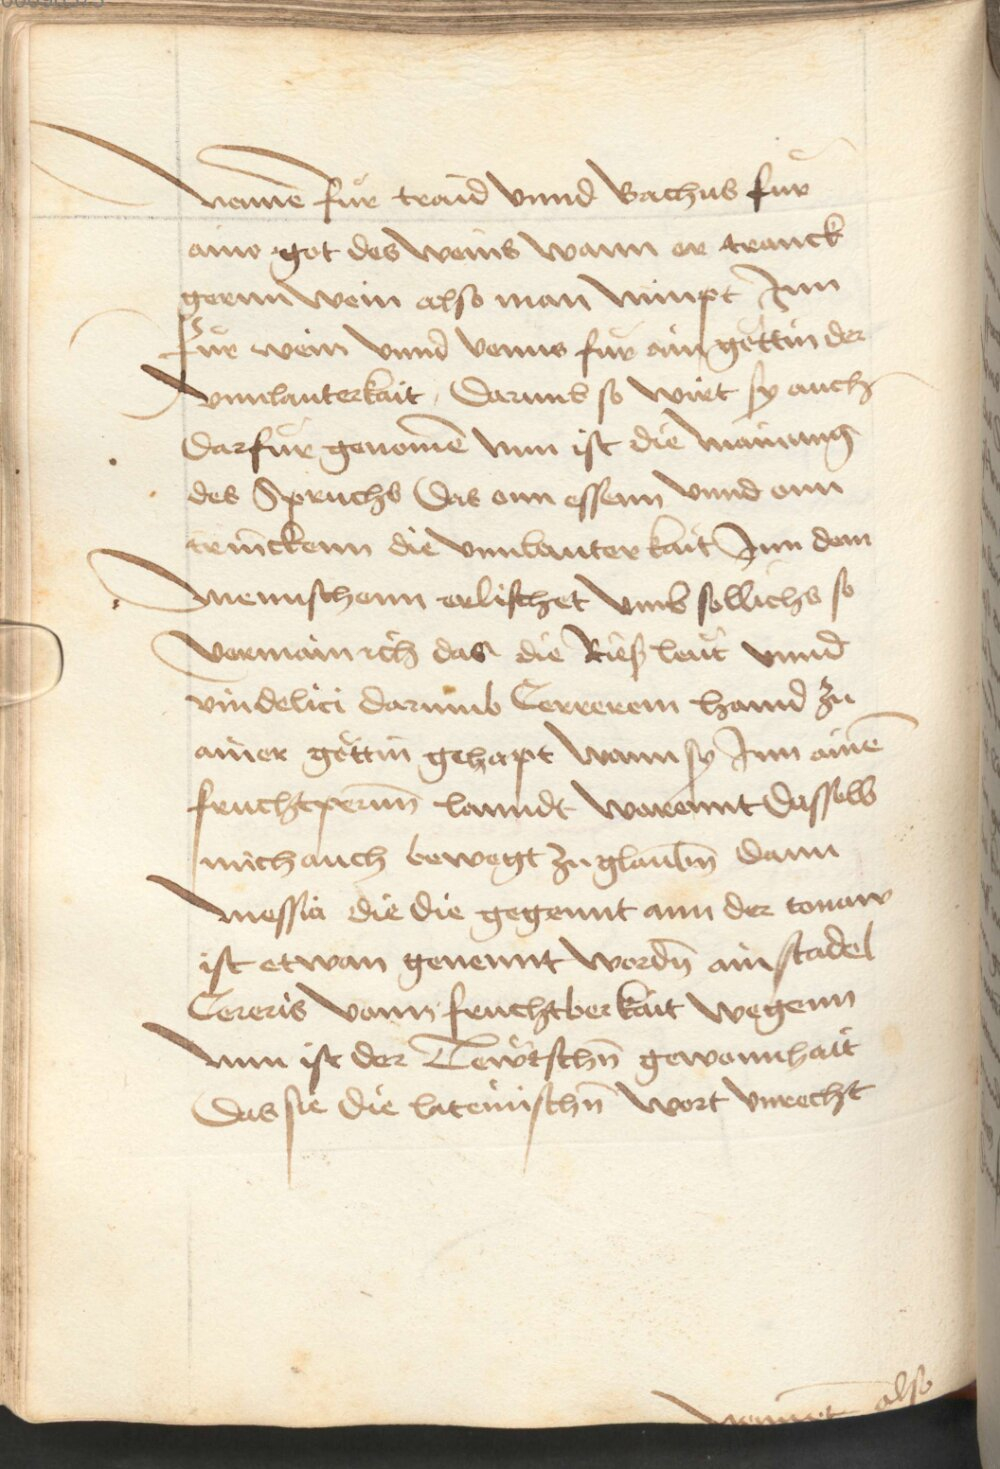 nenne für traid vnnd Bachus für
ains got des weins wann er tranck
gernn wein also man nimpt Inn
für wein vnnd venus für ain göttin der
vnnlauterkait, Darumb so wirt sy auch
Darfür genome͂ Nun ist die mainung
des Spruchs Das onn essenn vnnd onn
trinckenn die vnnlauterkait Inn dem
mennschenn erlischet vmb sollichs so
vermain ich das die Rieß leut vnnd
vindelici darumb Cerrerem hannd zu
ainer göttin gehapt wann sy Inn aine͂
fruchtpernn lanndt warennt Dasselb
mich auch bewegt zu glaubn̄ dann
messia die die gegennt ann der tonaw
ist etwan genennt wordn̄ ain stadel
Cereris vonn fruchtberkait wegenn
Nun ist der Tewtschn̄ gewonnhait
Das sie die lateinischn̄ wort vnrecht
nennet also